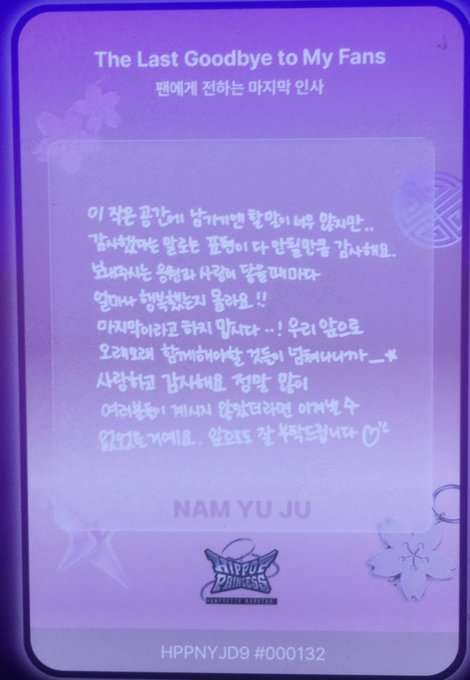 The Last Goodbye to My Fans
팬에게 전하는 마지막 인사
이 작은 공간에 남기기엔 할말이 너무 많지만..
감사했다는 말로는 표현이 다 안될만큼 감사해요.
보내주시는 응원과 사랑이 닿을때마다
얼마나 행복했는지 몰라요!!
마지막이라고 하지 맙시다..! 우리 앞으로
오래오래 함께해야할 것들이 넘쳐나니까
사랑하고 감사해요 정말 많이
여러분들이 계시지 않았더라면 이겨낼 수
없었을거예요. 앞으로도 잘 부탁드립니다♡
NAM YU JU
HIPPOP
PRINCESS
HPPNYJD9 #000132